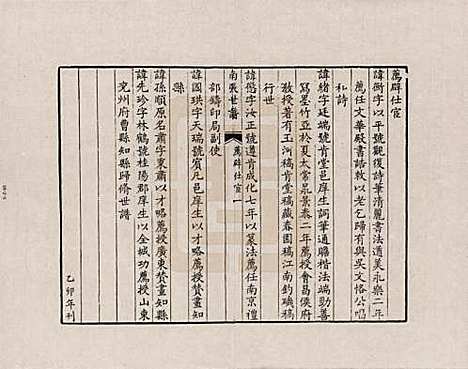 薦辟仕宦
諱衡字以平號觀復詩筆清麗書法遒美永樂二年
薦任文華殿書誥敕以老乞歸有與吳文恪公
私詩
諱緒字廷端號肯堂邑庠生詞筆通贍楷法端勁善
寫墨竹亞於夏太常㫤景泰二年薦授會昌侯府
教授著有玉河稿肯堂稿藏春園稿江南釣磯稿
行世
諱㥽字汝正號遵肯成化七年以篆法薦任南京禮
部鑄印局副使
南張世譜
薦辟仕宦
一
諱國珙字天瑞號賓凡邑庠生以才略薦授贊畫知
縣
諱孫順原名肅字東肅以才略薦授廣東贊畫知縣
諱先珍字林鶴號桂陽郡庠生以全城功薦授山東
兗州府曹縣知縣歸脩世譜
乙卯年刊